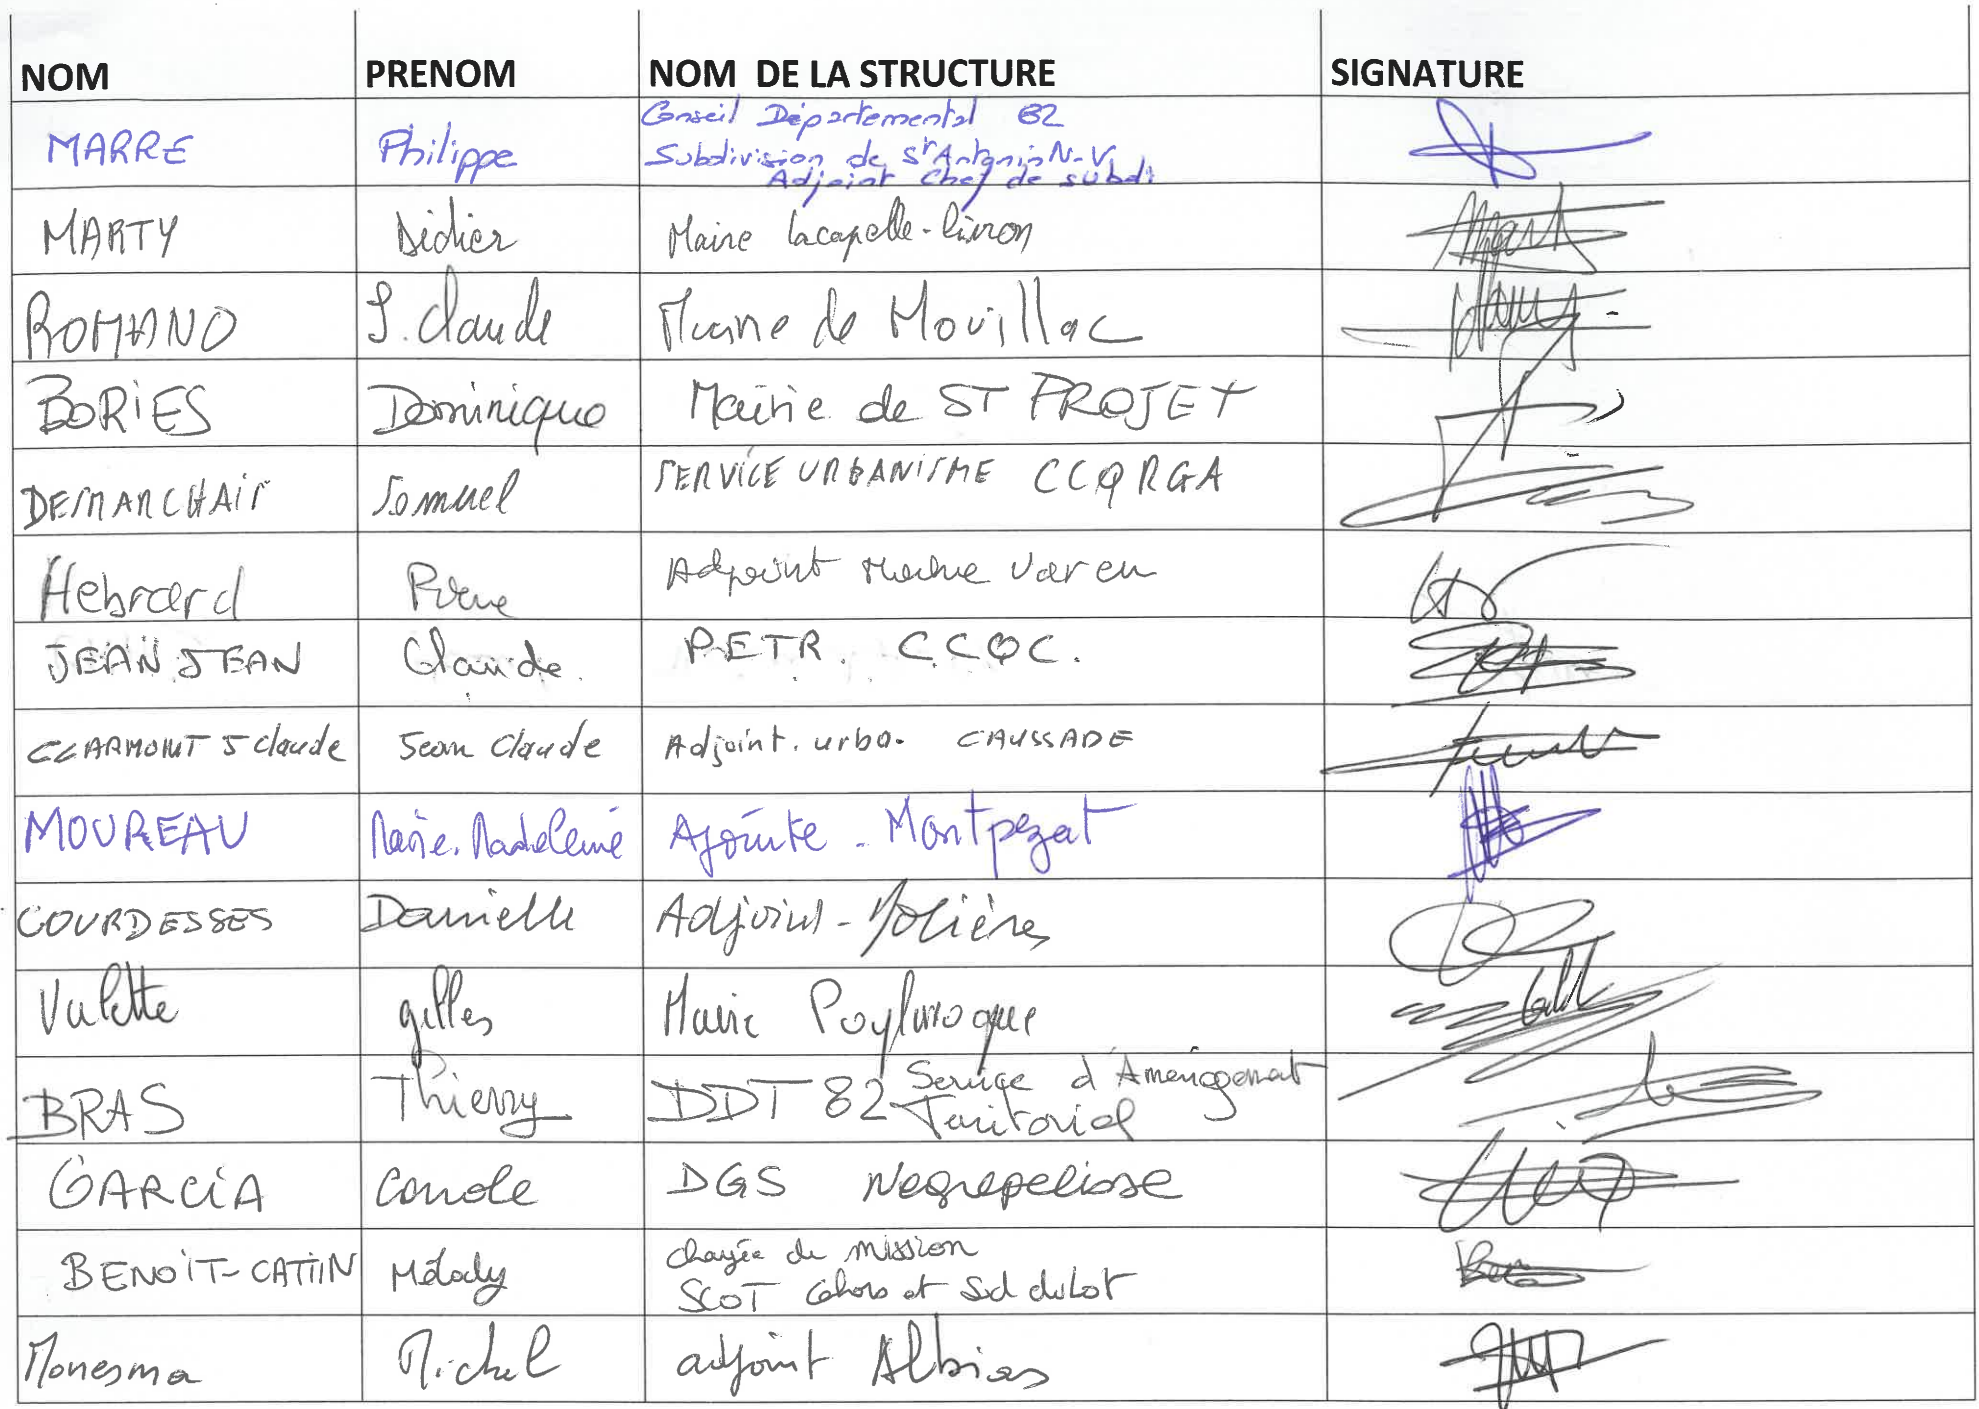 NOM PRENOM NOM DE LA STRUCTURE SIGNATURE
MARRE Philippe Conseil Départemental 82
Subdivision de St Antonin N-V
Adjoint Chef de subdi
MARTY Didier Maire Lacapelle-Livron
ROMANO J. Claude Maire de Mouillac
BORIES Dominique Mairie de ST PROJET
DEMARCHAIR Samuel SERVICE URBANISME CCQRGA
Hebrard Adjoint Varen
JEANJEAN Claude. PETR. C.C.Q.C.
CLARMONT J Claude Jean Claude Adjoint. urba. CAUSSADE
MOUREAU Marie-Madeleine Ajointe - Montpezat
COURDESSES Danielle Adjoint - Molières
Valette gilles Maire Puylaroque
BRAS Thierry DDT 82 Service d'Aménagement
Territorial
GARCIA Carole DGS Negrepelisse
BENOIT-CATTIN Mélody chargée de mission
SCOT Cahors et Sud du Lot
Monesma Michel adjoint Albias